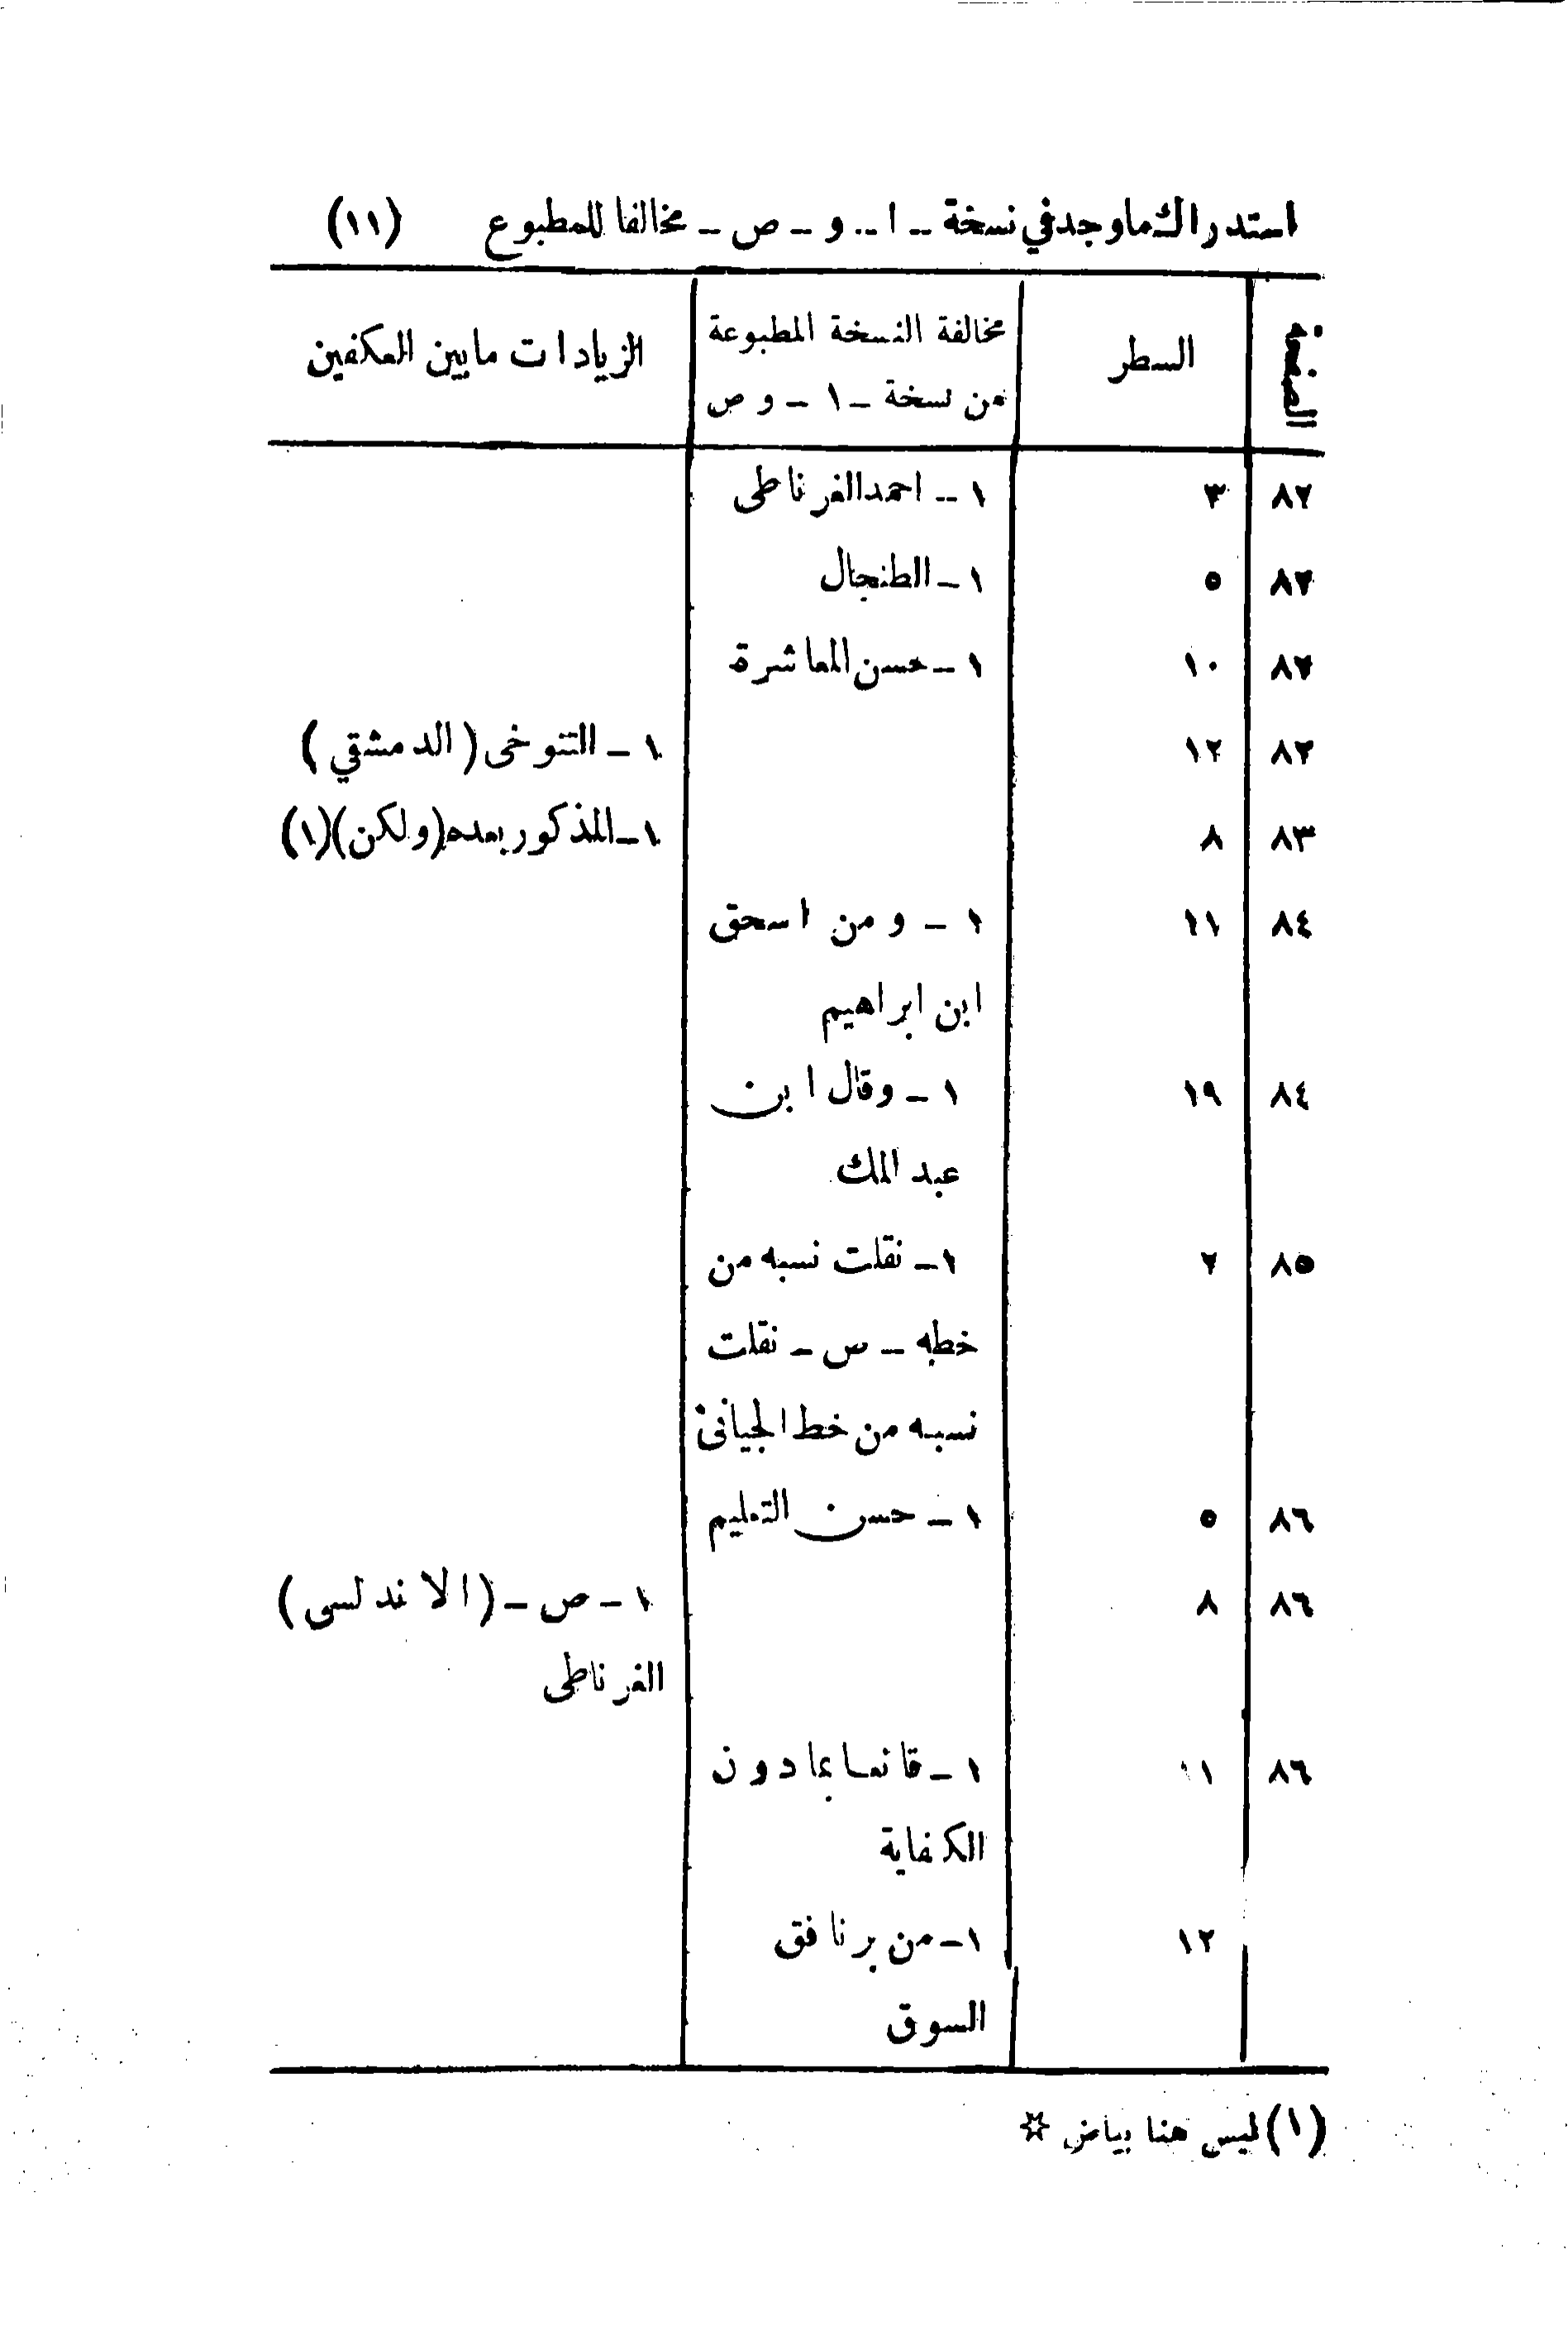 استدراك ما وجد في نسخة - ا - و - ص - مخالفا للمطبوع (١١)
الصفحة السطر مخالفة النسخة المطبوعة الزيادات ما بين العكفين
من نسخة - ١ - و ص
٨٢ ٣ ١ - احمد الغرناطى
٨٢ ٥ ١ - الطنجال
٨٢ ١٠ ١ - حسن المعاشرة
٨٢ ١٢ ١ - التنوخى (الدمشقي)
٨٣ ٨ ١ - المذكور بعده (ولكن) (١)
٨٤ ١١ ١ - ومن اسحق
ابن ابراهيم
٨٤ ١٩ ١ - وقال ابن
عبد الملك
٨٥ ٢ ١ - نقلت نسبه من
خطه - س - نقلت
نسبه من خط الجيانى
٨٦ ٥ ١ - حسن التعليم
٨٦ ٨ ١ - ص - (الاندلسى)
الغرناطى
٨٦ ١١ ١ - قانعا بمادون
الكفاية
١٢ ١ - من برنافق
السوق
(١) ليس هنا بياض ☆